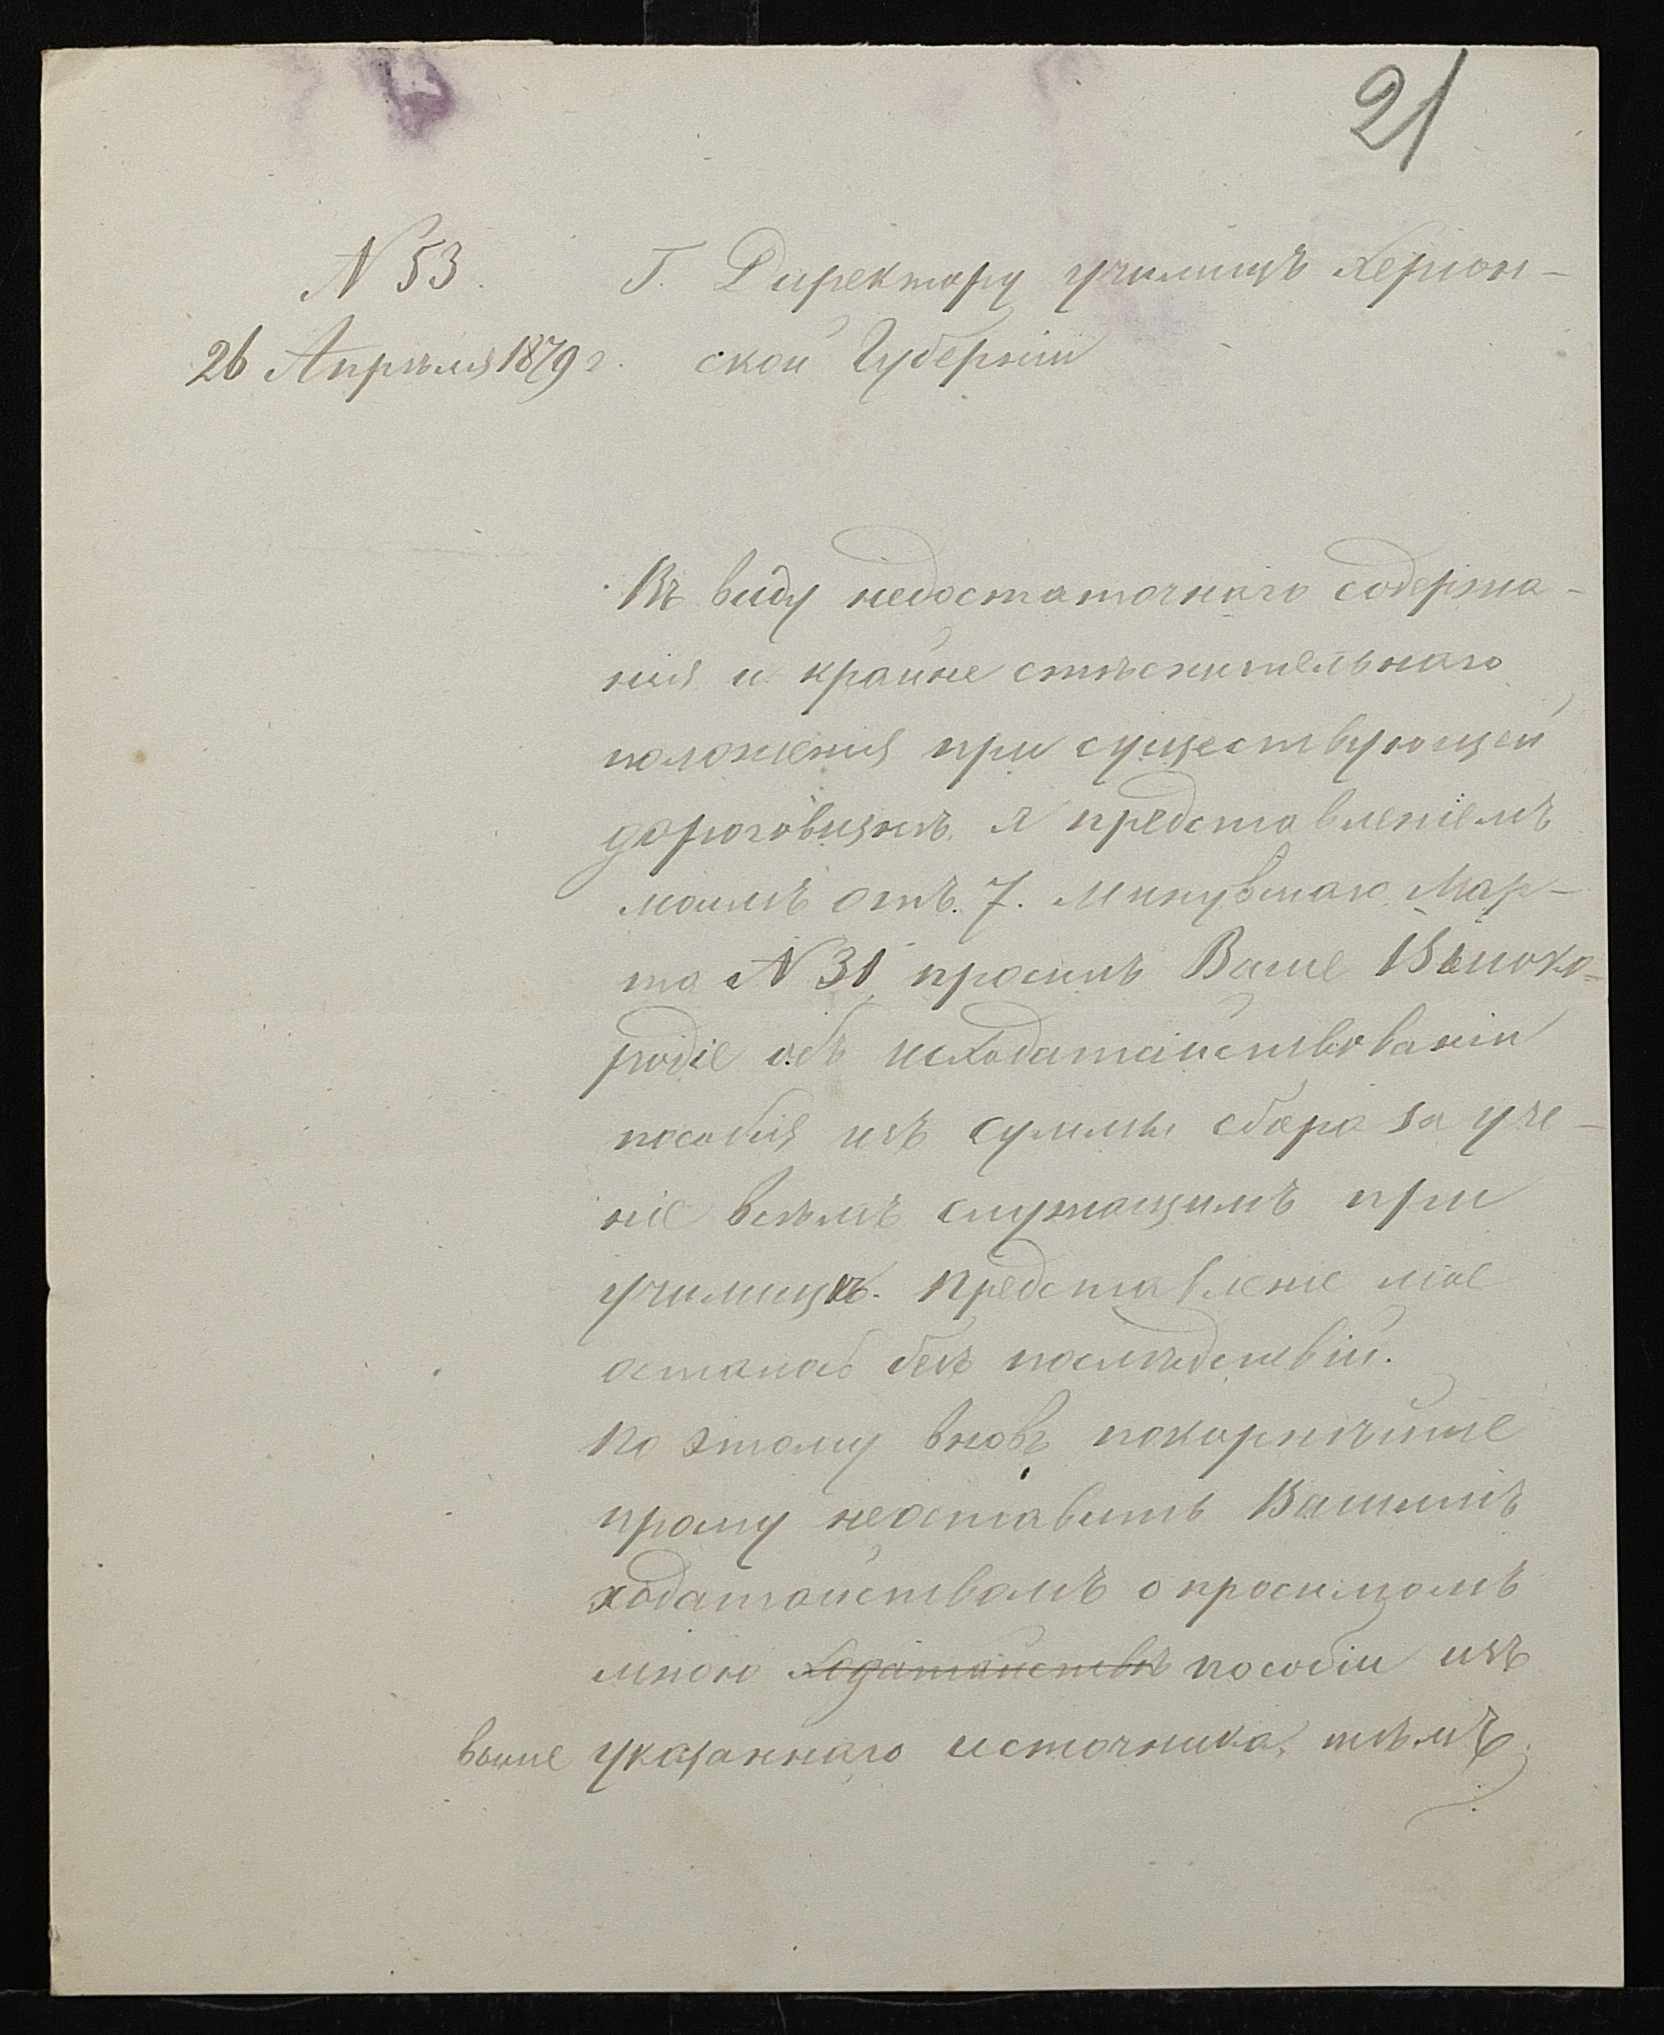 21
N 53.
26 Апрѣля 1879 г.
Г. Директору училищъ Херсон-
ской Губерніи
Въ виду недостаточнаго содержа-
нія и крайне стѣснительнаго
положенія при существующей
дороговизнѣ, я представленіемъ
моимъ отъ 7. минувшаго Мар-
та N 31 просилъ Ваше Высоко-
родіе объ исходатайствованіи
пособія изъ суммы сбора за уче-
ніе всѣмъ служащимъ при
училищѣ. Представленіе мое
осталось безъ послѣдствій.
По этому вновь покорнѣйше
прошу неоставить Вашимъ
ходатайствомъ о просимомъ
мною ходатайствѣ пособіи изъ
выше указаннаго источника, тѣмъ